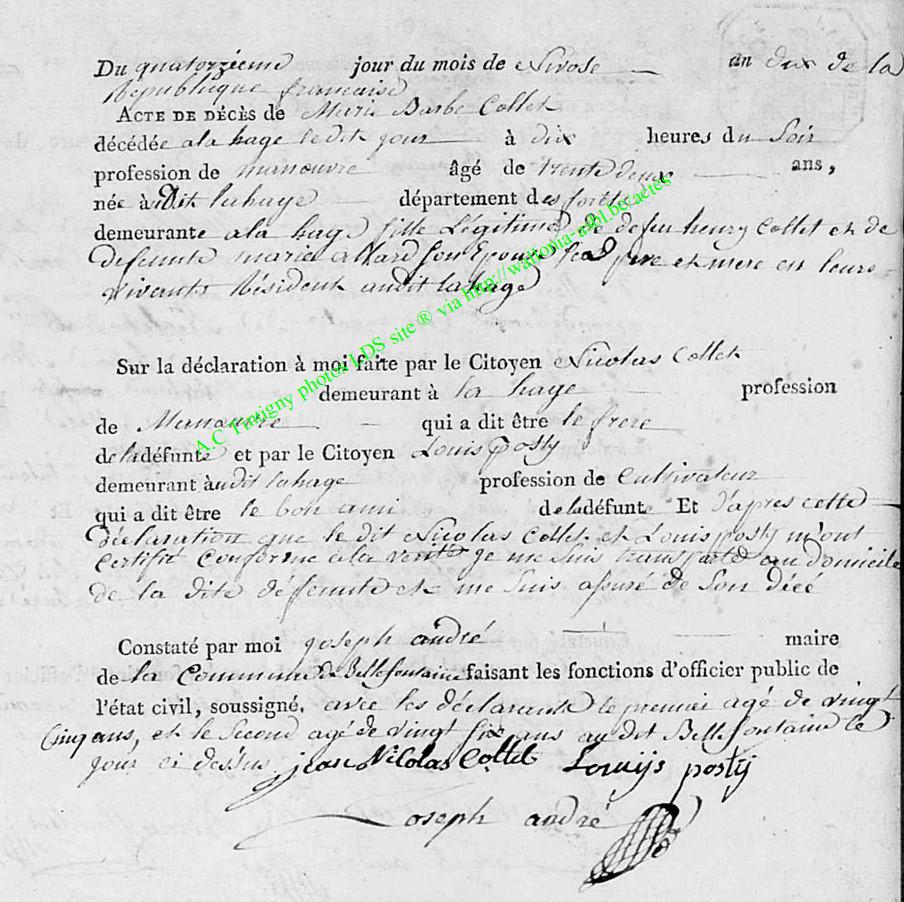 Du quatorzieme jour du mois de Nivose an dix de la
République francaise
ACTE DE DÉCÈS de Marie Barbe Collet
décédée a la hage le dit jour à dix heures du Soir
profession de manoeuvre âgé de trente deux ans,
née à dit lahage département des forêts
demeurante a la hage fille Légitime de defeu henry Collet et de
deffunte marie allard son Epouse pere et mere en leurs
vivants Résident audit lahage
Sur la déclaration à moi faite par le Citoyen Nicolas Collet
demeurant à la hage profession
de Manoeuvre qui a dit être le frere
de la défunte et par le Citoyen Louis posty
demeurant audit lahage profession de Cultivateur
qui a dit être le bon ami de la défunte Et d'apres cette
déclaration que le dit Nicolas Collet et Louis posty m'ont
certifit conforme a la verité je me suis transporté au domicile
de la dite deffunte et me suis assuré de son décé
Constaté par moi joseph andré maire
de la Commune de Bellefontaine faisant les fonctions d'officier public de
l'état civil, soussigné, avec les déclarants le premier agé de vingt
cinq ans, et le second agé de vingt six ans au dit Bellefontaine le
jour ci dessus jean Nicolas Collet Louijs postij
Joseph andré
A.C Tintigny photos LDS site ® via http://wallonia-asbl.be/actes